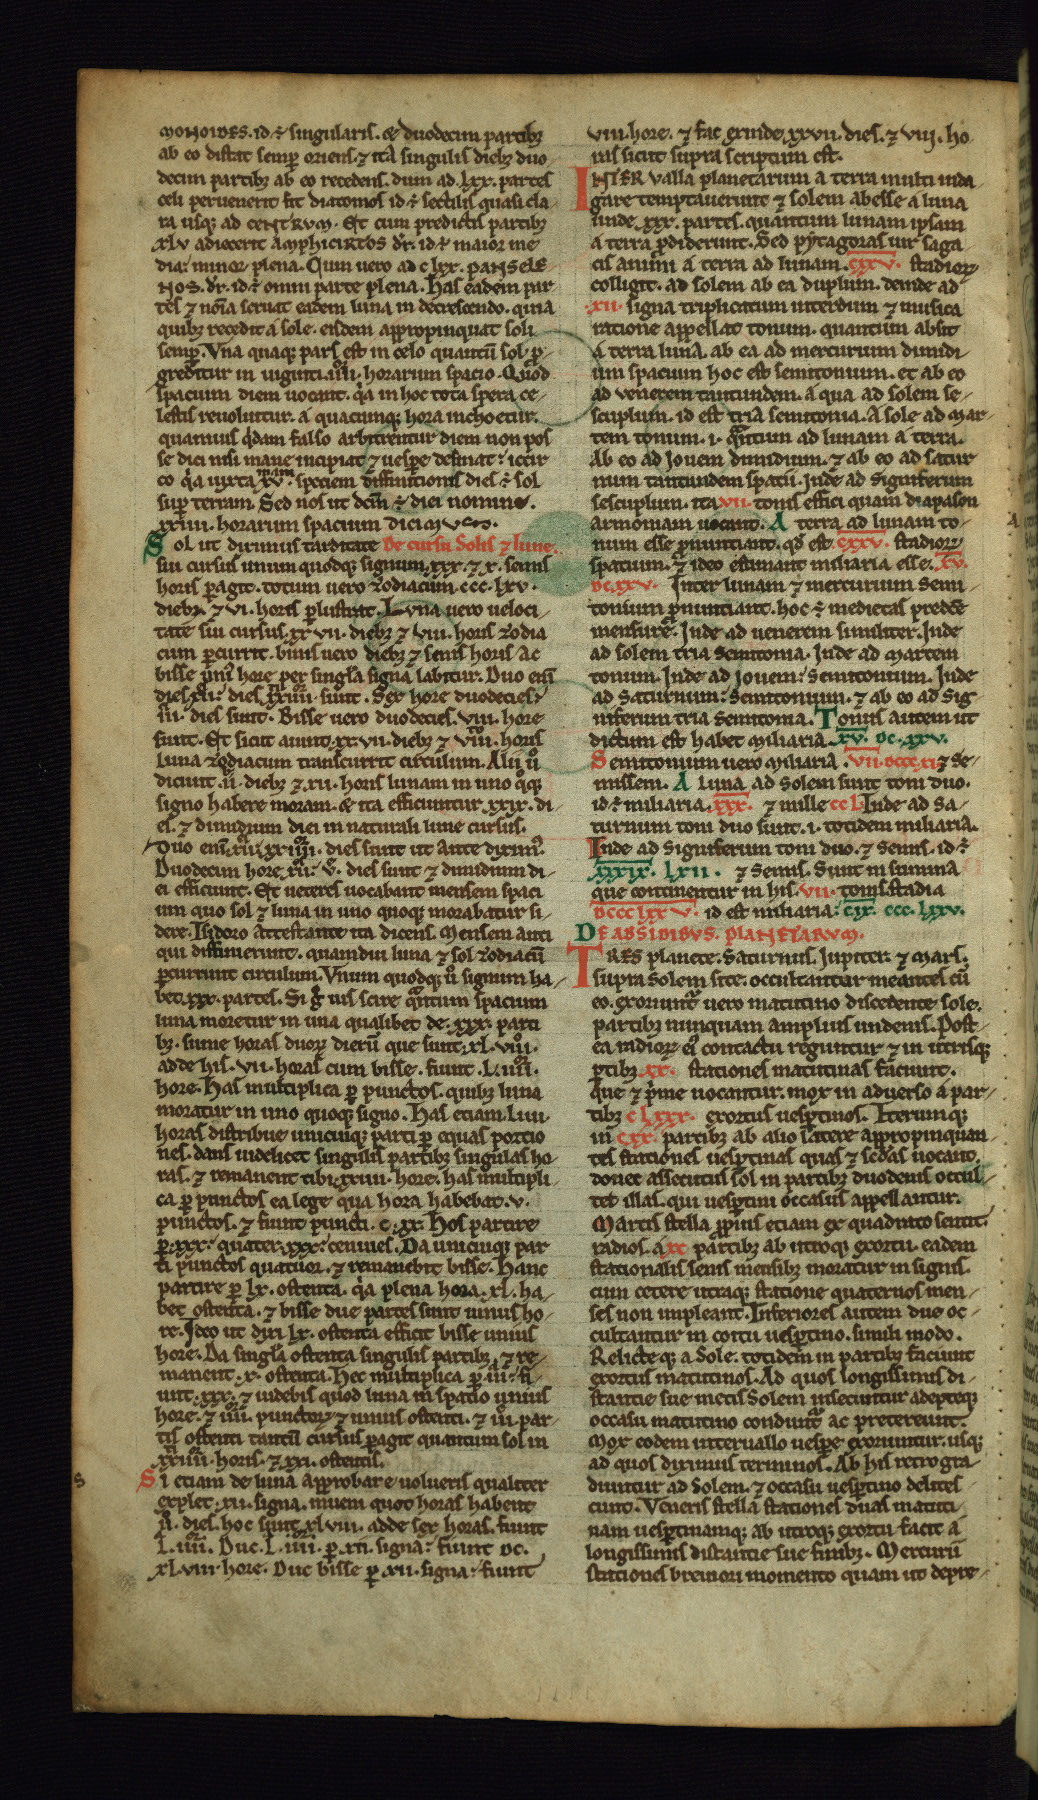 monoides. id ē singularis. & duodecim partibꝫ
ab eo distat semꝑ oriens. ⁊ ita singulis diebꝫ duo
decim partibꝫ ab eo recedens. dum ad .lxx. partes
celi peruenerit fit diatomos id ē sectilis quasi cla
ra usqꝫ ad centrvm. Et cum predictis partibꝫ
xlv adiecerit amphicirtos dr̄. id ē maior me
dia: minor plena. Cum vero ad clxx. pansele
nos. dr̄. id ē omni parte plena. Has easdem par
tes ⁊ noīa seruat eadem luna in decrescendo. quia
quibꝫ recedit a sole. eisdem appropinquat soli
semꝑ. Vna quaqꝫ pars est in celo quantū sol ꝓ
greditur in uiginti.iiii. horarum spacio. Quod
spacium diem uocant. q̄a in hoc tota spera ce
lestis reuoluitur. a quacumqꝫ hora inchoetur.
quamuis q̄dam falso arbitrentur diem non pos
se dici nisi mane incipiat ⁊ uespe desinat: iccir
co q̄a iuxta xv. speciem diffinitionis dies ē sol
sup terram. Sed nos ut dcm̄ ē dici nomine.
xxiiii. horarum spacium dicimvs.
Sol ut diximus tarditate De cursu Solis ⁊ lune.
sui cursus unum quodqꝫ signum .xxx. ⁊ x. semis
horis ꝑagit. totum vero zodiacum .ccc. lxv.
diebꝫ. ⁊ vi. horis ꝑlustrat. Luna vero veloci
tate sui cursus. xx vii. diebꝫ ⁊ viii. horis zodia
cum ꝑcurrit. binis vero diebꝫ ⁊ senis horis ac
bisse uni' hore per singl'a signa labitur. Duo enī
dies xii: dies .xxiiii. sunt. Sex hore duodecies:
iii. dies sunt. Bisse vero duodecies. viii. hore
sunt. Et sicut aiunt. xx vii. diebꝫ ⁊ viii. horis
Luna zodiacum transcurrit circulum. Alii u̇
dicunt .ii. diebꝫ ⁊ xii. horis lunam in uno q̊qꝫ
signo habere moram. & ita efficiuntur .xxix. di
es. ⁊ dimidium diei in naturali lune cursus.
Duo enī xii: xxiiii. dies sunt ut ante dixim'.
Duodecim hore xii: v. dies sunt ⁊ dimidium di
ei efficiunt. Et ueteres uocabant mensem spaci
um quo sol ⁊ luna in uno quoqꝫ morabatur si
dere. Isidoro attestante ita dicens. Mensem anti
qui diffinierunt. quamdiu luna ⁊ sol zodiacū
ꝑcurrunt circulum. Vnum quodqꝫ u̇ signum ha
bet .xxx. partes. Si g̊ uis scire q̄ntum spacium
luna moretur in una qualibet de .xxx. parti
bꝫ. sume horas duorꝫ dierū que sunt. xl. viii.
adde his .vii. horas cum bisse. fiunt. L. iiii.
hore. Has multiplica ꝑ punctos. quibꝫ luna
moratur in uno quoqꝫ signo. Has etiam Liiii
horas distribue unicuiqꝫ parti ꝑ equas portio
nes. dans uidelicet singulis partibꝫ singulas ho
ras. ⁊ remanent tibi. xxiiii. hore. has multipli
ca ꝑ punctos ea lege qua hora habebat. v.
punctos. ⁊ fiunt puncti. c. xx. Hos partire
ꝑ. xxx. quater. xxx: cenuies. Da unicuiqꝫ par
ti punctos quatuor. ⁊ remanebit bisse. Hanc
partire ꝑ lx. ostenta. q̄a plena hora. xl. ha
bet ostenta. ⁊ bisse due partes sunt unius ho
re. Ideo ut dixi lx. ostenta efficit bisse unius
hore. Da singl'a ostenta singulis partibꝫ. ⁊ re
manent. x. ostenta. Hec multiplica ꝑ iii: fi
unt. xxx. ⁊ uidebis quod luna in spatio unius
hore. ⁊ iiii. punctorꝫ ⁊ unius ostenti. ⁊ iii par
tis ostenti tantū cursus ꝑagit quantum sol in
xxiiii. horis. ⁊ xxi. ostentis.
Si etiam de luna approbare uolueris qualiter
explet. xii. signa. inuem quot horas habent
ii. dies. hoc sunt xl viii. adde sex horas. fiunt
L. iiii. Duc. L. iiii. ꝑ. xii. signa: fiunt dc.
xl. viii. hore. Duc bisse ꝑ xii. signa: fiunt
viii. hore. ⁊ fac exinde. xxvii. dies. ⁊ viii. ho
ris sicut supra scriptum est.
INTER valla planetarum a terra multi inda
gare temptauerunt ⁊ solem abesse a luna
unde .xxx. partes. quantum lunam ipsam
a terra ꝓdiderunt. Sed pytagoras uir saga
cis animi a terra ad lunam. cxxv. stadiorꝫ
colligit. ad solem ab ea duplum. deinde ad
.xii. signa triplicatum interdum ⁊ musica
ratione appellat tonum. quantum absit
a terra luna. ab ea ad mercurium dimidi
um spacium hoc est semitonium. et ab eo
ad venerem tantundem. a qua ad solem se
scuplum. id est tria semitonia. A sole ad mar
tem tonum. i. q̄ntum ad lunam a terra.
Ab eo ad Jouem dimidium. ⁊ ab eo ad satur
num tantundem spatii. Inde ad signiferum
sescuplum. ita vii. tonis effici quam diapason
armoniam uocant. A terra ad lunam to
num esse ꝓnuntiant. qd̄ est cxxv. stadiorꝫ
spatium. ⁊ ideo estimant miliaria esse. xv.
dc. xxv. Inter lunam ⁊ mercurium semi
tonium ꝓnuntiant. hoc ē medietas predcē
mensurę. Inde ad uenerem similiter. Inde
ad solem tria semitonia. Inde ad martem
tonum. Inde ad Jouem: semitonium. Inde
ad Saturnum: semitonium. ⁊ ab eo ad sig
niferum tria semitonia. Tonus autem ut
dictum est habet miliaria. xv. dc. xxv.
Semitonium uero miliaria. vii. dccc. xi ⁊ se
missem. A luna ad solem sunt toni duo.
id ē miliaria. xxx. ⁊ mille cc L Inde ad sa
turnum toni duo sunt. i. totidem miliaria.
Inde ad signiferum toni duo. ⁊ semis. id ē
xxxix. lxii. ⁊ semis. Sunt in summa
que continentur in his. vii. tonis. stadia
dccc lxx v. id est miliaria: cix. ccc. lxxv.
DE ABSIDIBVS. PLANETARVM.
TRES planete. Saturnus. Jupiter. ⁊ Mars.
supra Solem site. occultantur meantes cū
eo. exoriunt̄ vero matutino discedente sole.
partibꝫ nunquam amplius undenis. Post
ea radiorꝫ ei' contactu reguntur ⁊ in utrisqꝫ
ꝑtibꝫ. xx. stationes matutinas faciunt.
que ⁊ p̄me uocantur. mox in aduerso a par
tibꝫ clxxx. exortus uesꝑtinos. Iterumqꝫ
in cxx. partibꝫ ab alio latere appropinquan
tes stationes uesꝑtinas quas ⁊ scd̄as uocant.
donec assecutus sol in partibꝫ duodenis occul
tet illas. qui uesꝑtini occasus appellantur.
Martis stella ꝓpius etiam ex quadrato sentit
radios. a xc partibꝫ ab utroqꝫ exortu. eadem
stationalis senis mensibꝫ moratur in signis.
cum cetere utraqꝫ statione quaternos men
ses non impleant. Inferiores autem due oc
cultantur in coitu uesꝑtino. simili modo.
Relicteqꝫ a Sole. totidem in partibꝫ faciunt
exortus matutinos. Ad quos longissimis di
stantie sue metis Solem insecuntur adepteqꝫ
occasu matutino condunt̄ ac pretereunt.
Mox eodem interuallo uesꝑe exoriuntur. usqꝫ
ad quos diximus terminos. Ab his retrogra
diuntur ad Solem. ⁊ occasu uesꝑtino delites
cunt. Veneris stella stationes duas matuti
nam uesꝑtinamqꝫ ab utroqꝫ exortu facit a
longissimis distantie sue finibꝫ. Mercurii
stationes breuiori momento quam ut depre